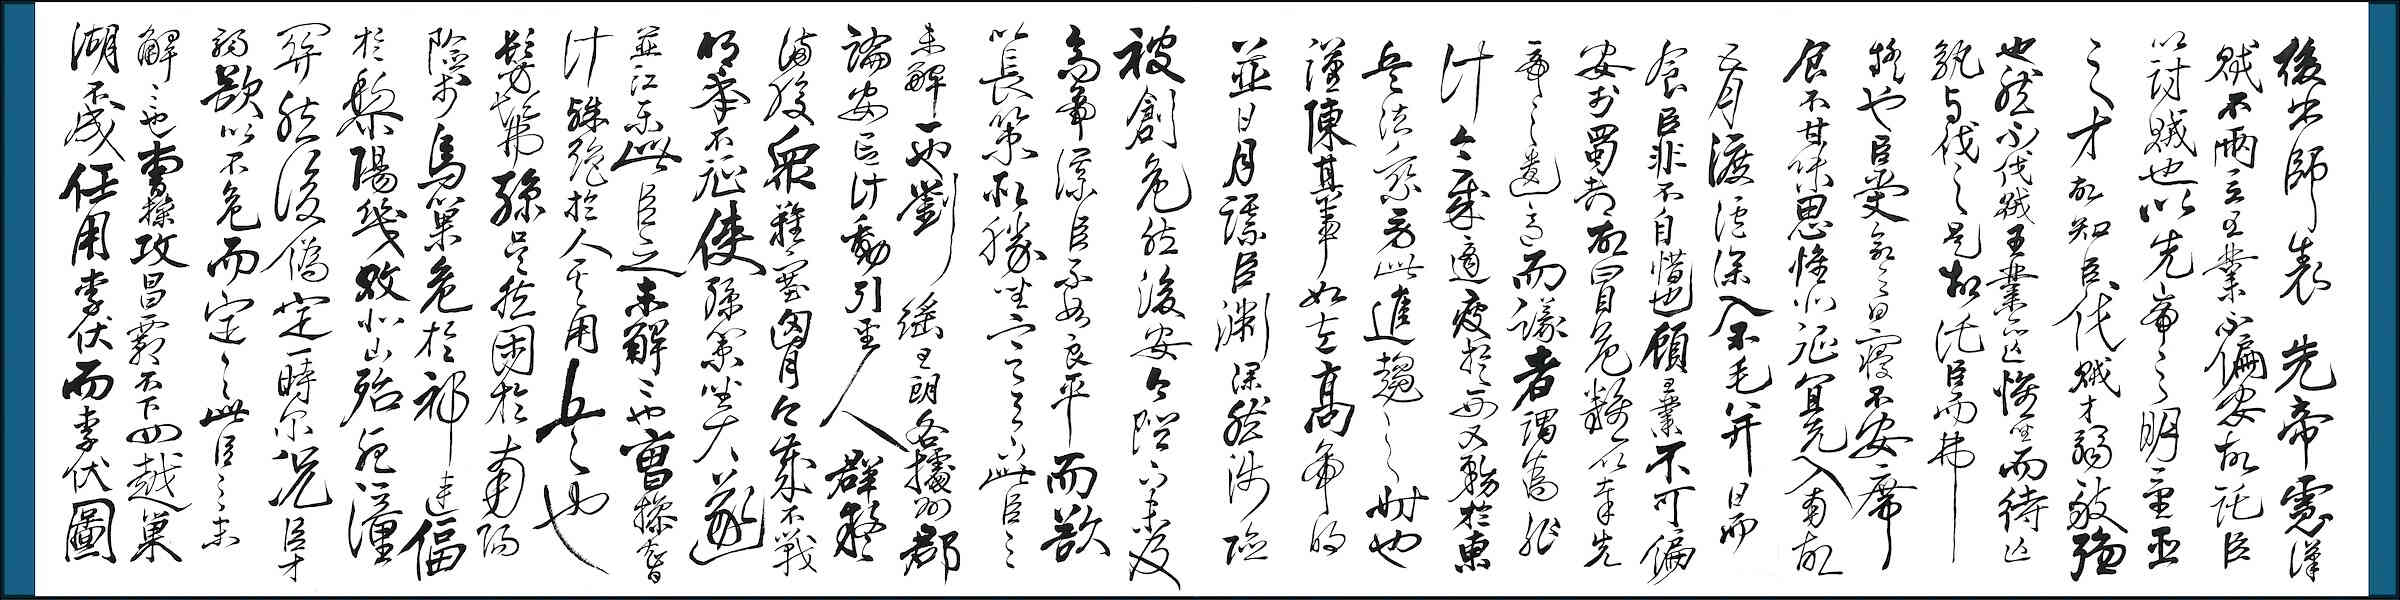 後出師表 先帝慮漢
賊不兩立王業不偏安故託臣
以討賊也以先帝之明量臣
之才故知臣伐賊才弱敵強
也然不伐賊王業亦亡惟坐而待亡
孰與伐之是故託臣而弗
疑也臣受命之日寢不安席
食不甘味思惟北征宜先入南故
五月渡瀘深入不毛并日而
食臣非不自惜也顧王業不可偏
安於蜀都故冒危難以奉先
帝之遺意而議者謂為非
計今賊適疲於西又務於東
兵法乘勞此進趨之時也
謹陳其事如左高帝明
並日月謀臣淵深然涉險
被創危然後安今陛下未及
高帝謀臣不如良平而欲
以長策取勝坐定天下此臣之
未解一也劉繇王朗各據州郡
論安言計動引聖人群疑
滿腹眾難塞胸今歲不戰
明年不征使孫策坐大遂
並江東此臣之未解二也曹操智
計殊絕於人其用兵也
髣髴孫吳然困於南陽
險於烏巢危於祁連偪
於黎陽幾敗北山殆死潼
關然後偽定一時爾況臣才
弱欲以不危而定之此臣之未
解三也曹操攻昌霸不下四越巢
湖不成任用李伏而李伏圖